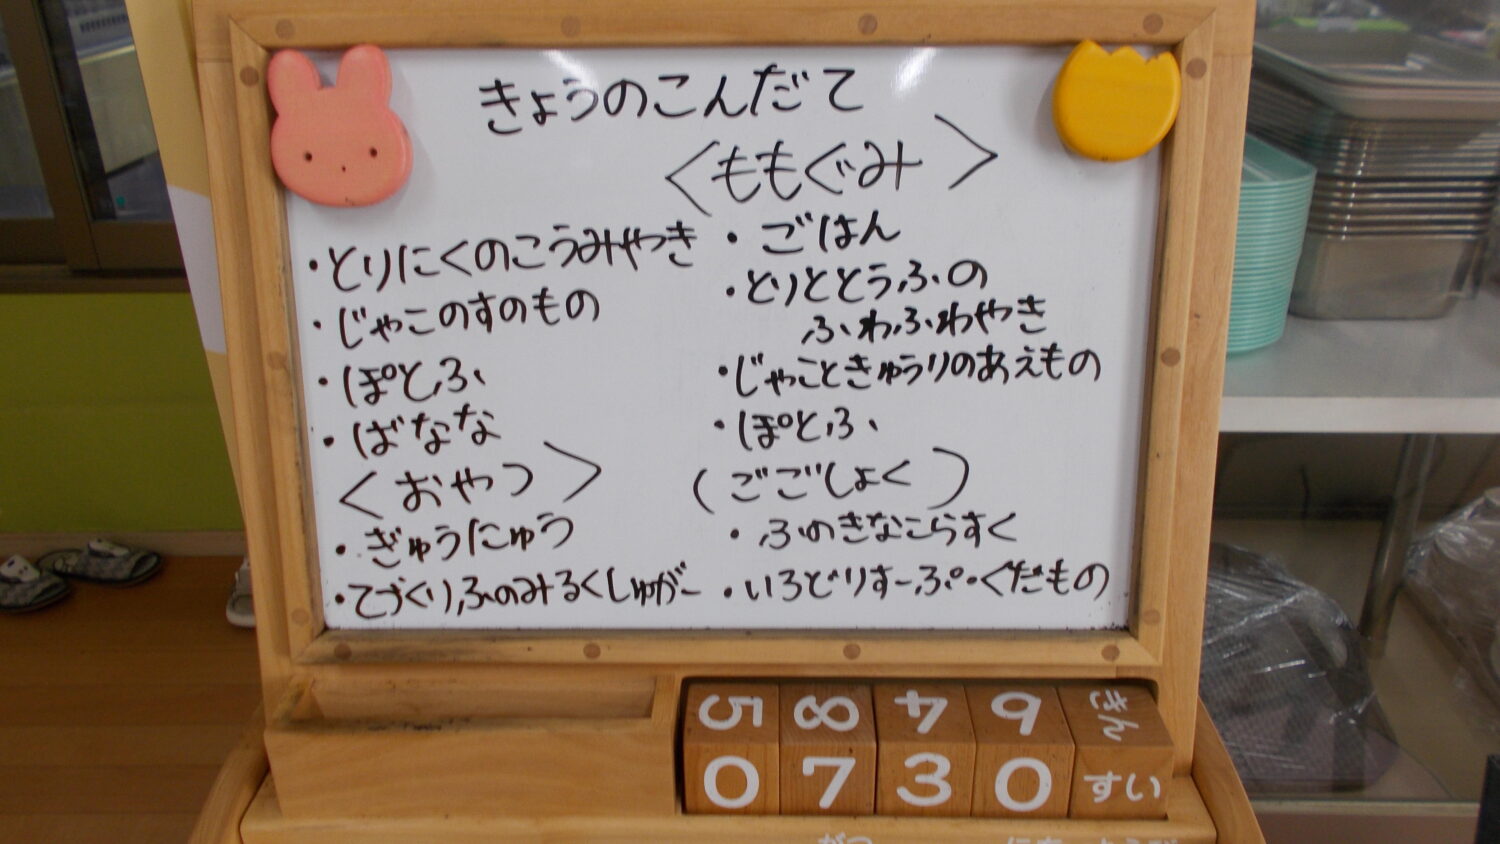 きょうのこんだて
・とりにくのこうみやき
・じゃこのすのもの
・ぽとふ
・ばなな
<おやつ>
・ぎゅうにゅう
・てづくりふのみるくしゅがー
<ももぐみ>
・ごはん
・とりととうふの
ふわふわやき
・じゃこときゅうりのあえもの
・ぽとふ
(ごごしょく)
・ふのきなこらすく
・いろどりすーぷ・くだもの
5 8 4 9 きん
0 7 3 0 すい